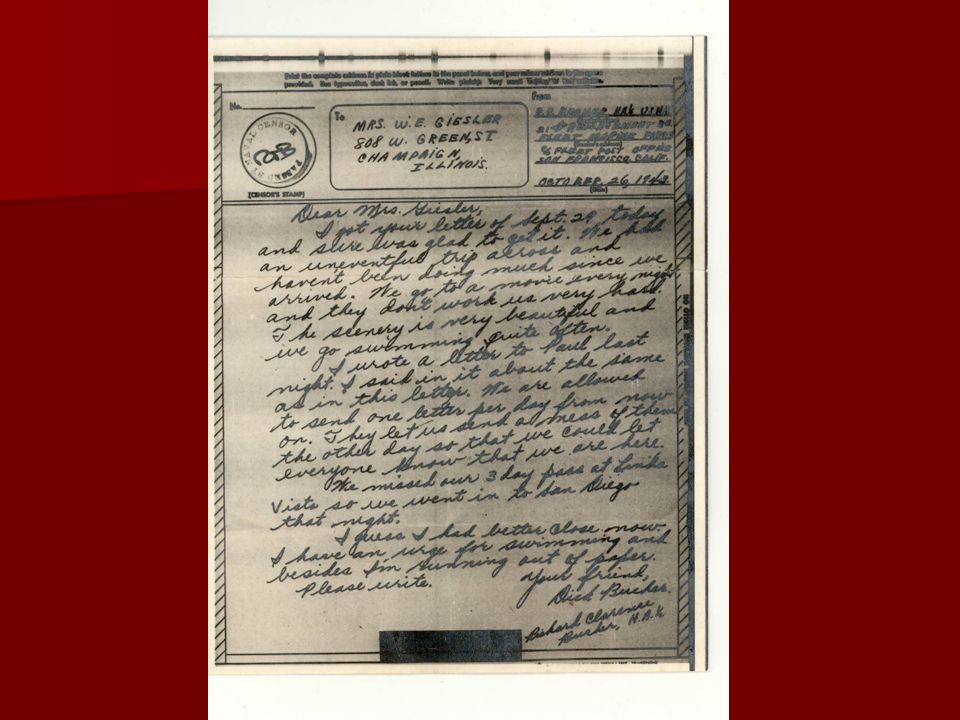 Print the complete address in plain block letters in the panel below, and your return address in the space
provided. Use typewriter, dark ink, or pencil. Write plainly. Very small writing is not suitable.
No.
To
From
NAVAL CENSOR
PASSED BY
(CENSOR'S STAMP)
MRS. W.E. GIESLER
808 W. GREEN, ST
CHAMPAIGN,
ILLINOIS.
HA1c USN.
FLEET MARINE FORCE
(Sender's address)
% FLEET POST OFFICE
SAN FRANCISCO, CALIF.
OCTOBER 26, 1943.
(Date)
Dear Mrs. Giesler,
I got your letter of Sept. 29 today
and sure was glad to get it. We had
an uneventful trip across and
havent been doing much since we
arrived. We go to a movie every night
and they dont work us very hard.
The scenery is very beautiful and
we go swimming quite often.
I wrote a letter to Paul last
night. I said in it about the same
as in this letter. We are allowed
to send one letter per day from now
on. They let us send a mess of them
the other day so that we could let
everyone know that we are here.
We missed our 3 day pass at Linda
Vista so we went in to San Diego
that night.
I guess I had better close now,
I have an urge for swimming and
besides I'm running out of paper.
Please write.
Your friend,
Dick Bucher.
Richard Clarence
Bucher, H.A.1c